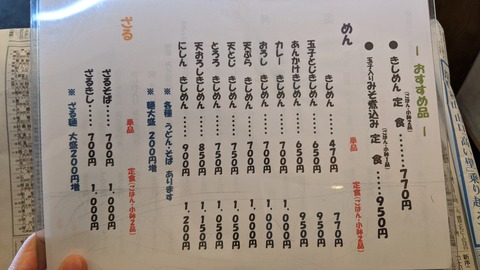 — おすすめ品 —
● きしめん 定食(ごはん・小鉢2品)‥‥‥770円
● 玉子入りみそ煮込み 定食(ごはん・小鉢2品)‥‥‥950円
めん 単品 定食(ごはん・小鉢2品)
きしめん‥‥470円 770円
玉子とじきしめん‥‥650円 950円
あんかけきしめん‥‥650円 950円
カレーきしめん‥‥700円 1,000円
おろしきしめん‥‥700円 1,000円
天ぷらきしめん‥‥750円 1,050円
天とじきしめん‥‥750円 1,050円
とろろきしめん‥‥700円 1,000円
天おろしきしめん‥‥850円 1,150円
にしんきしめん‥‥900円 1,200円
※ 各種 うどん・そば あります
※ 麺大盛 200円増
ざる 単品 定食(ごはん・小鉢2品)
ざるそば‥‥700円 1,000円
ざるきし‥‥700円 1,000円
※ ざる麺 大盛200円増